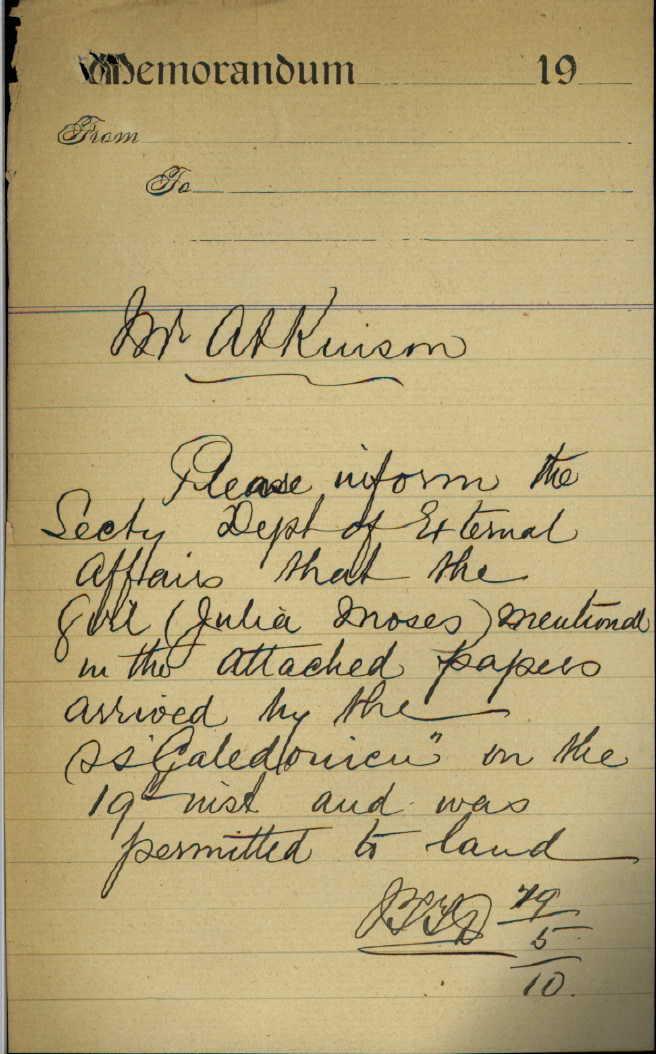 Memorandum 19
From
To
Mr Atkinson
Please inform the
Secty Dept of External
Affairs that the
girl (Julia Moses) mentioned
in the attached papers
arrived by the
SS "Caledonien" on the
19th inst and was
permitted to land
19
5
10.